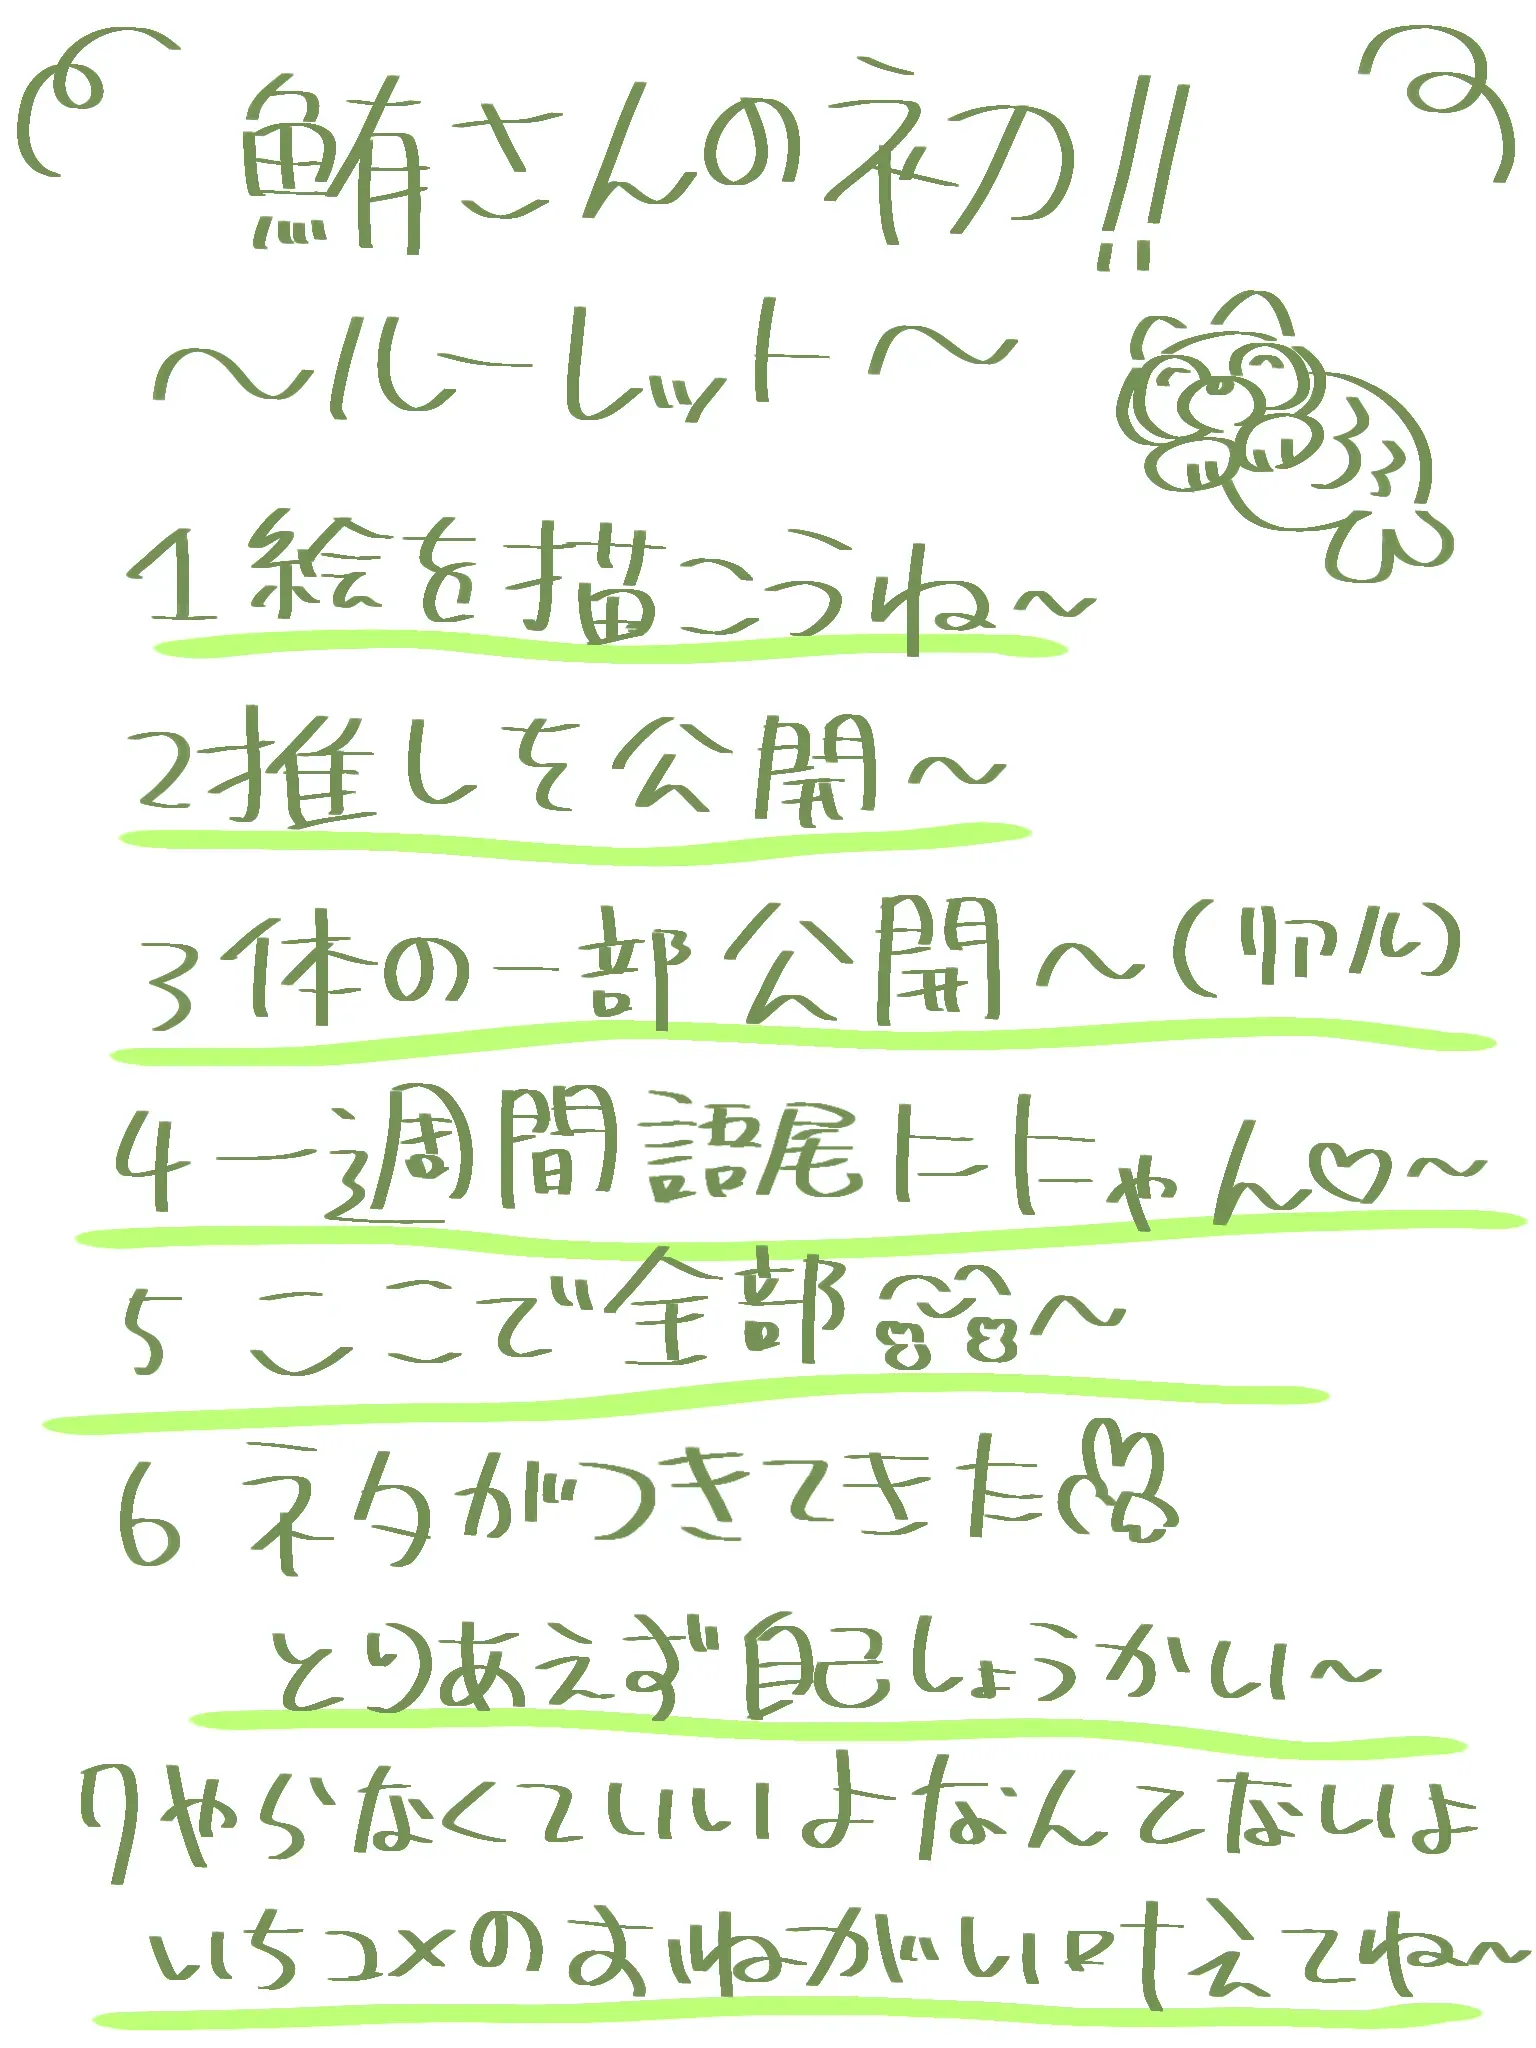 鮪さんの初!!
～ルーレット～
1絵を描こうね～
2推しを公開～
3体の一部公開～(リアル)
4一週間語尾ににゃん♡～
5 ここで全部～
6 ネタがつきてきた
とりあえず自己しょうかい～
7やらなくていいよなんてないよ
いちコメのおねがい叶えてね～